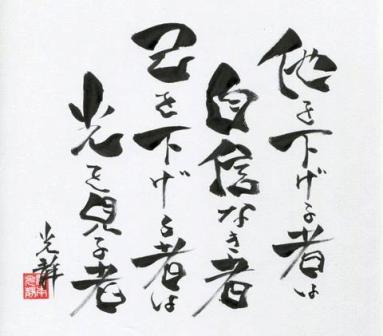 他を下げる者は
自信なき者
己を下げる者は
光を見る者